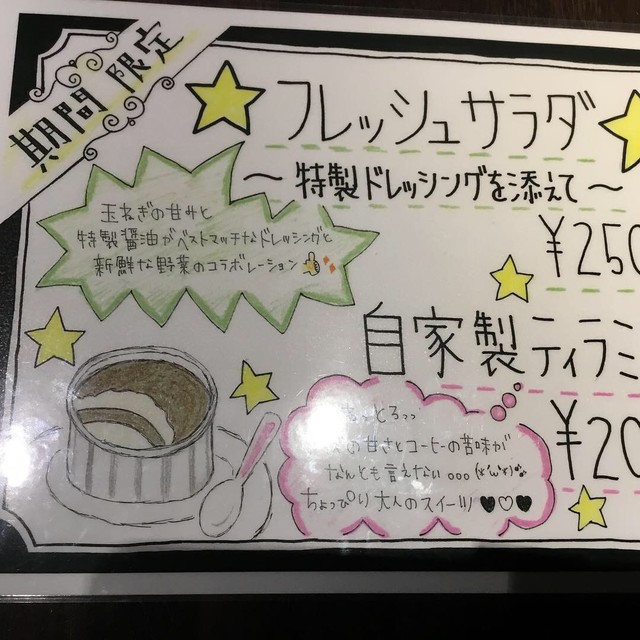 期間限定
フレッシュサラダ
～特製ドレッシングを添えて～
¥250
玉ねぎの甘サと
特製醤油がベストマッチなドレッシングと
新鮮な野菜のコラボレーション
自家製ティラミ
¥20
とろっっ
の甘さとコーヒーの苦味が
なんとも言えない...
ちょっぴり大人のスイーツ♥♡♥